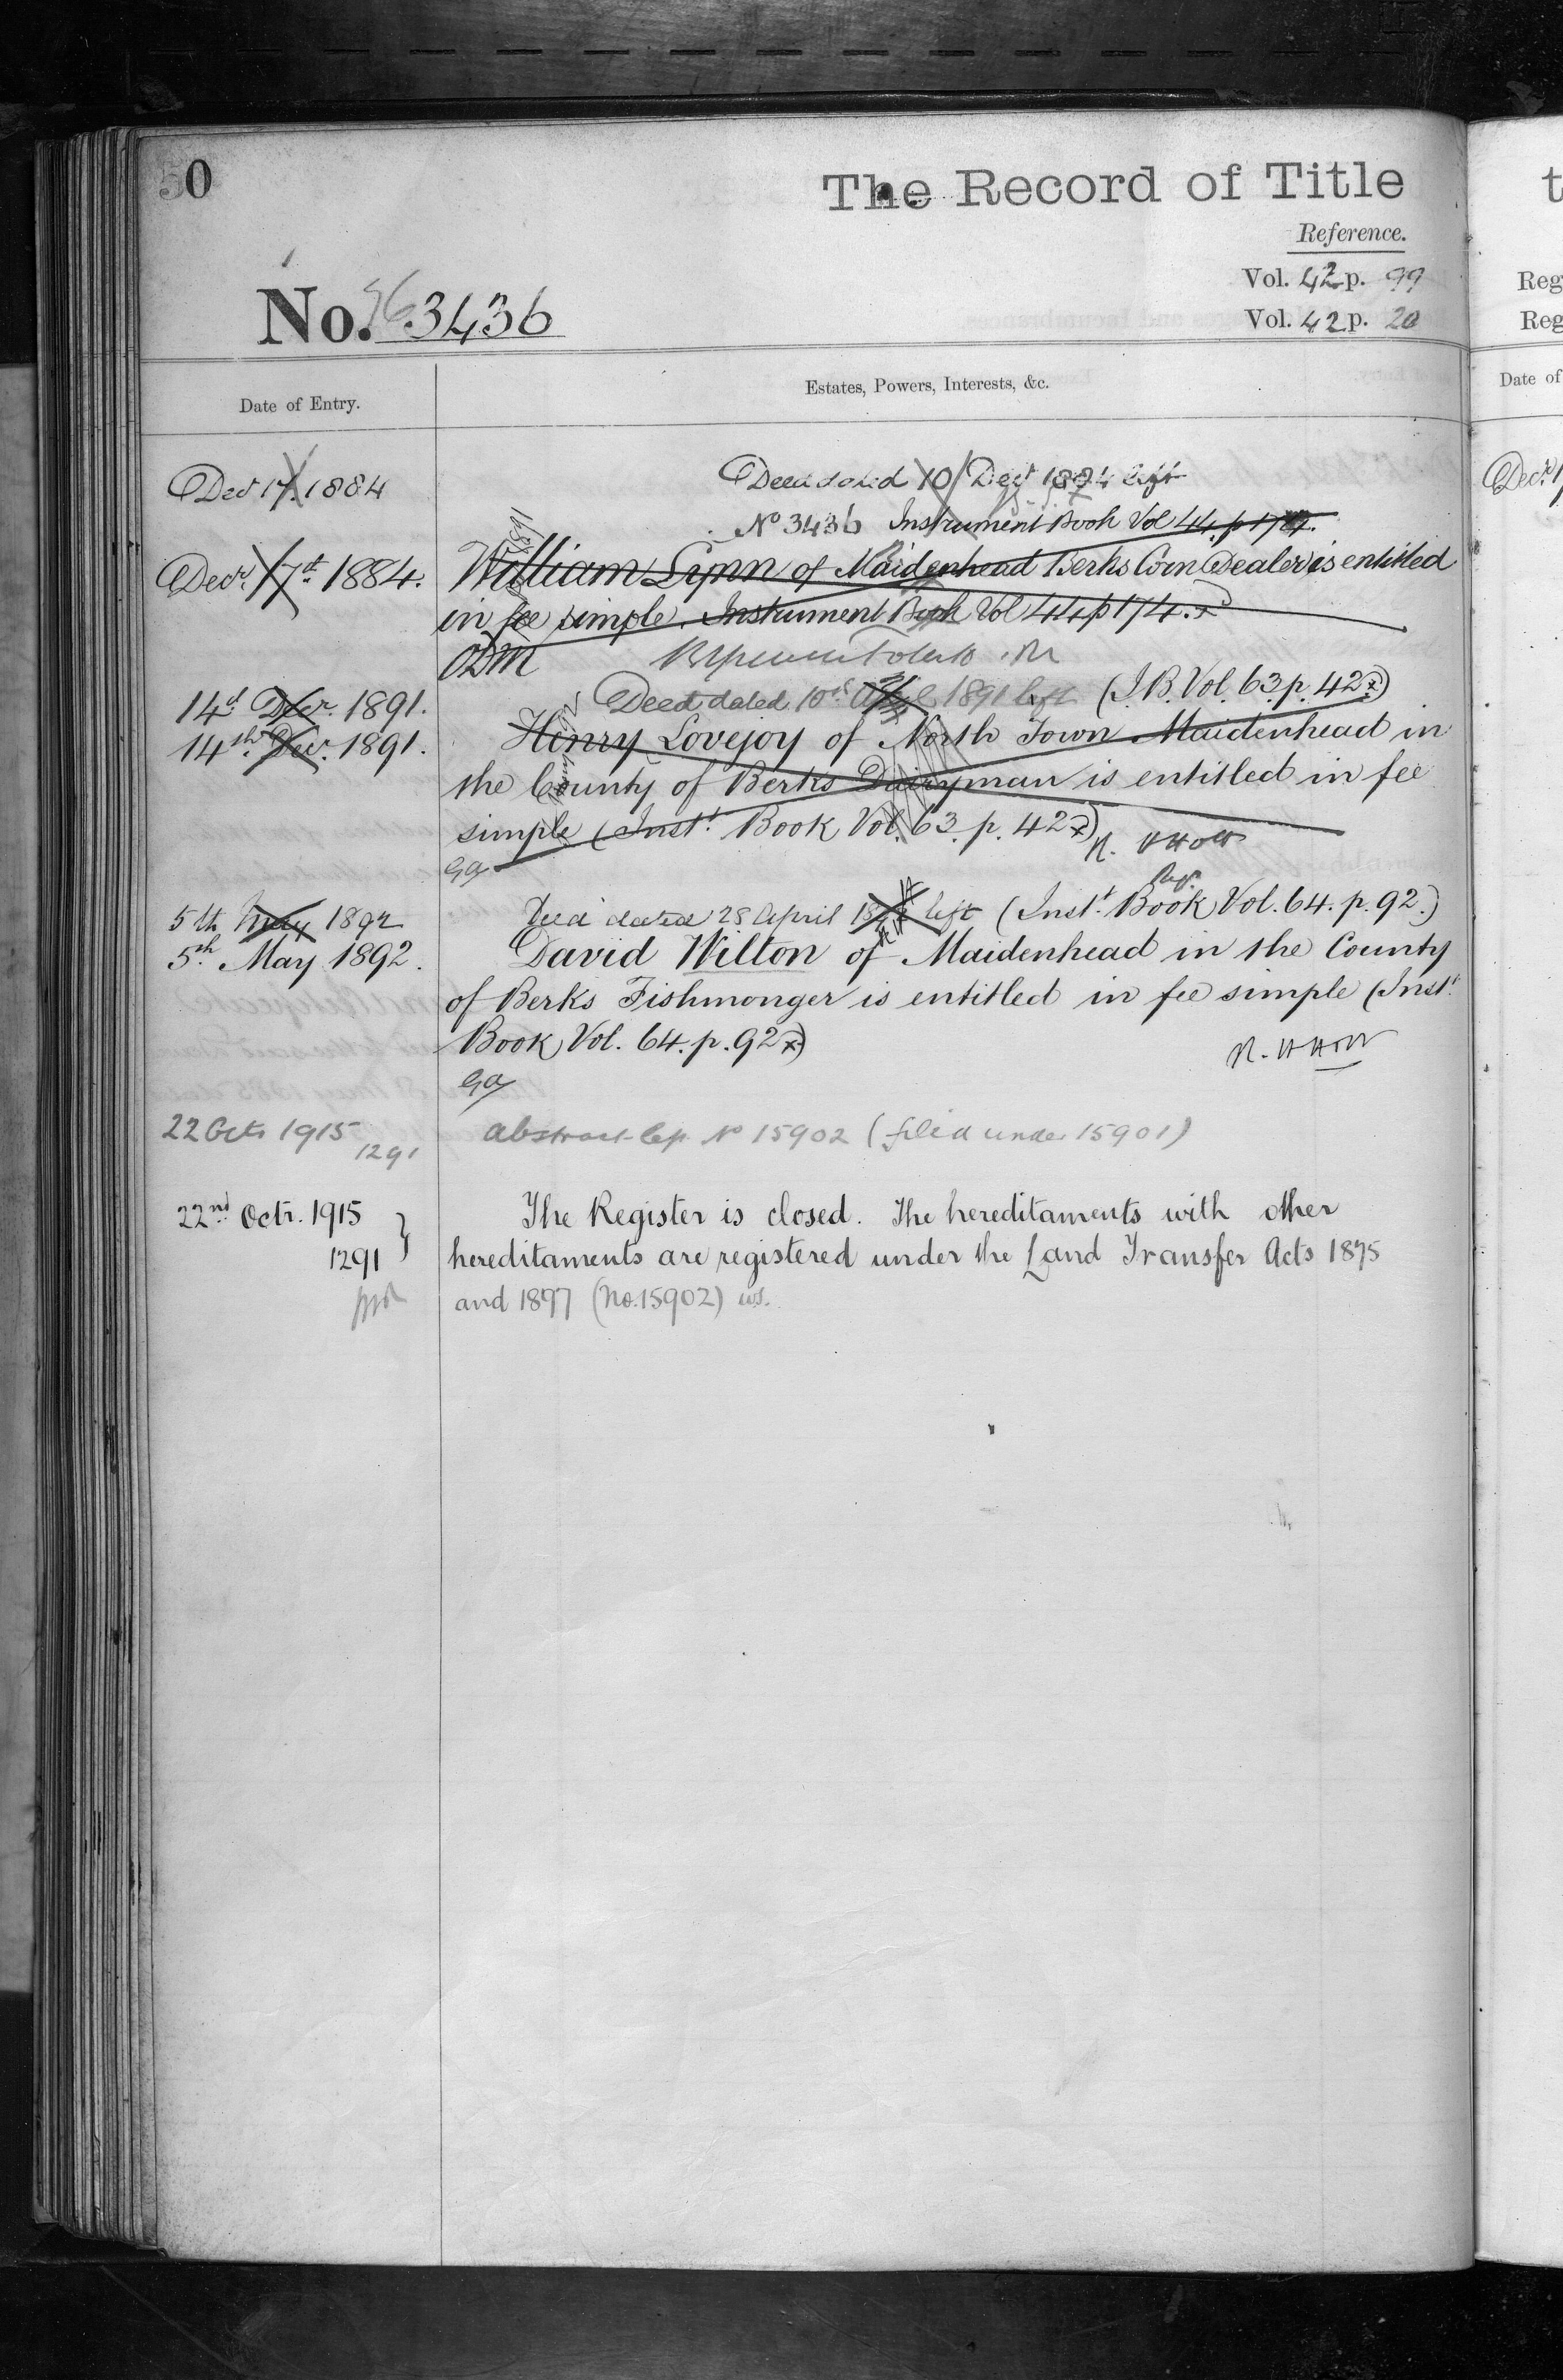 50
The Record of Title
Reference.
Vol. 42 p. 99
Vol. 42 p. 20
No. 3436
Date of Entry.
Estates, Powers, Interests, &c.
Decr 17. 1884
Deed dated 10 Decr 1884 left
No 3436 Instrument Book Vol 44. p 174.
Decr. 17th 1884.
William Lynn of Maidenhead Berks Corn Dealer is entitled
in fee simple. Instrument Book Vol 44 p 174.
14th Decr. 1891.
Deed dated 10th 1891 left (I.B. Vol. 63 p. 42)
14th Decr. 1891.
Henry Lovejoy of North Town Maidenhead in
the County of Berks Dairyman is entitled in fee
simple (Inst. Book Vol. 63. p. 42)
5th May 1892
Deed dated 28 April left (Inst. Book Vol. 64. p. 92.)
5th May 1892.
David Wilton of Maidenhead in the County
of Berks Fishmonger is entitled in fee simple (Inst.
Book Vol. 64. p. 92)
22 Octr 1915
1291
abstract No 15902 (filed under 15901)
22nd Octr. 1915
1291
The Register is closed. The hereditaments with other
hereditaments are registered under the Land Transfer Acts 1875
and 1897 (No. 15902)
t
Reg
Reg
Date of
Decr 1